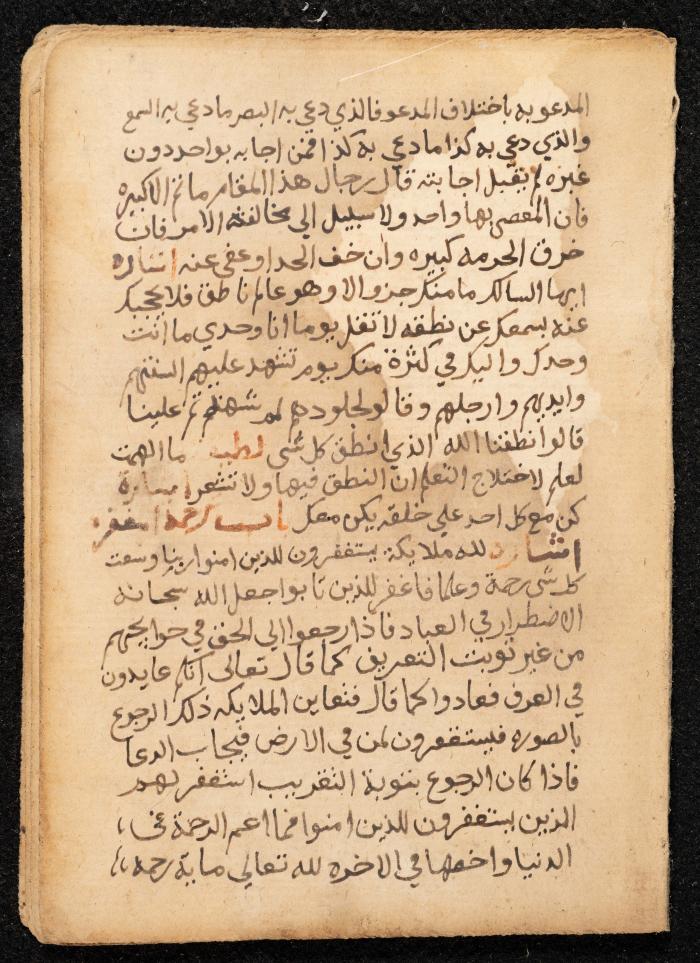 المدعو به باختلاف المدعو فالذي دعي به البصر ما دعي به السمع
والذي دعي به كذا ما دعي به كذا فمن اجابه بواحد دون
غيره لم يقبل اجابته قال رجال هذا المقام ما ثم الا كبيره
فان المعصي بها واحد ولا سبيل الي مخالفته الامر فان
خرق الحرمه كبيره وان خف الحد او عفي عنه اشاره
ايها السالك ما منك جزو الا وهو عالم ناطق فلا يحجبك
عنه بسمعك عن نطقه لا تقل يوما انا وحدي ما انت
وحدك واليك في كثرة منك يوم تشهد عليهم السنتهم
وايديهم وارجلهم وقالو لجلودهم لم شهدتم علينا
قالوا نطقنا الله الذي انطق كل شي ما الهمت
لعلم لاختلاج التعلم ان النطق فيها ولا تشعر اشارة
كن مع كل احد علي خلقه يكن معك
اشاره لله ملايكة يستغفرون للذين امنوا ربنا وسعت
كل شي رحمة وعلما فاغفر للذين تابوا جعل الله سبحانه
الاضطرار في العباد فاذا رجعوا الي الحق في حوايجهم
من غير توبت التعريف كما قال تعالى انكم عايدون
في العرف فعادوا كما قال فتعاين الملايكه ذلك الرجوع
بالصوره فيستغفرون لمن في الارض فيجاب الدعا
فاذا كان الرجوع بتوبة التقريب استغفر لهم
الذين يستغفرون للذين امنوا فما اعم الرحمة في
الدنيا واخصها في الاخره لله تعالي ماية رحمه